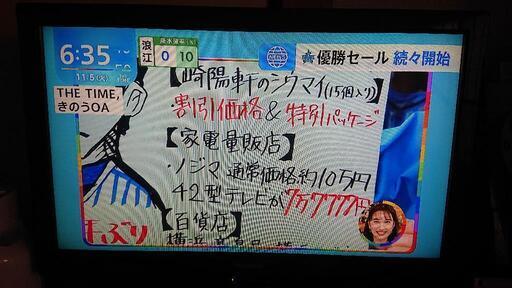 6:35
11.5(火)
浪江
降水確率(%)
0 10
優勝セール 続々開始
THE TIME,
きのうOA
【崎陽軒のシウマイ(15個入り)】
・割引価格&特別パッケージ
【家電量販店】
・ノジマ 通常価格約10万円
42型テレビが7万7777円
【百貨店】
手ぶり